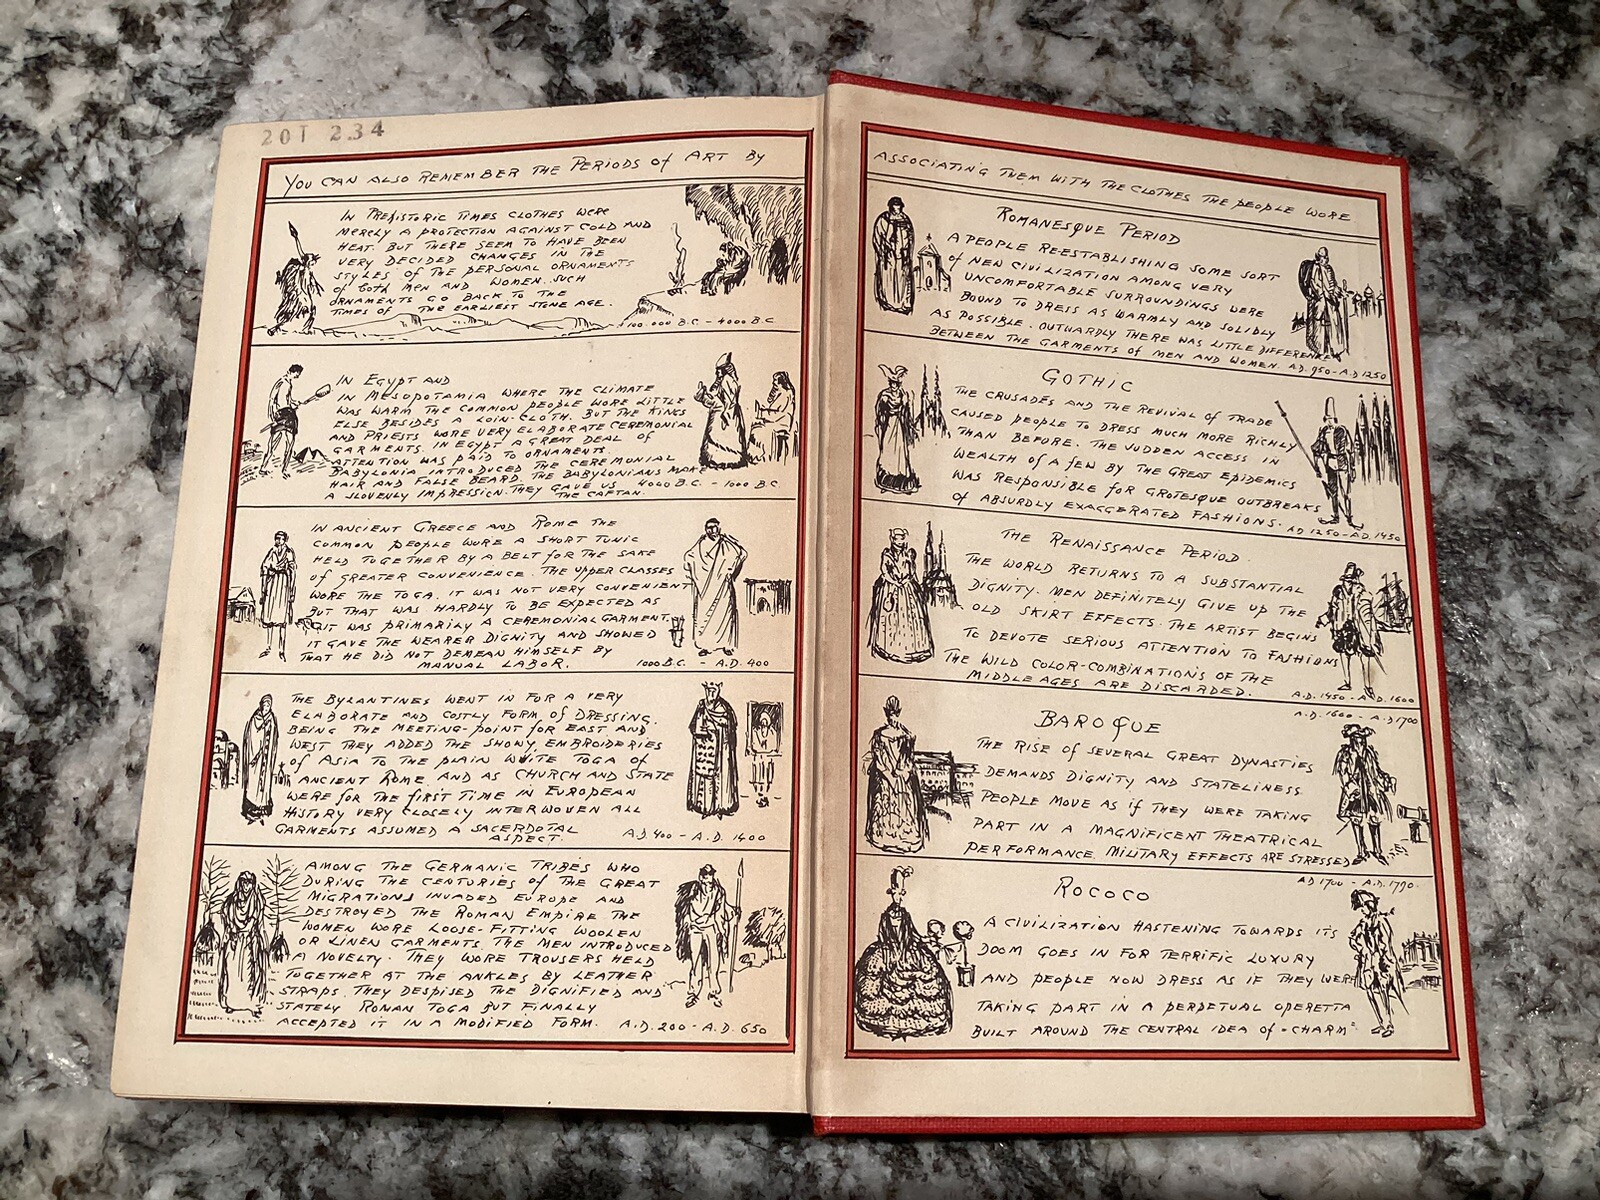 201 234
YOU CAN ALSO REMEMBER THE PERIODS of ART BY
IN PREHISTORIC TIMES CLOTHES WERE
MERELY A PROTECTION AGAINST COLD AND
HEAT. BUT THERE SEEM TO HAVE BEEN
VERY DECIDED CHANGES IN THE
STYLES OF THE PERSONAL ORNAMENTS
of both MEN AND WOMEN. SUCH
ORNAMENTS GO BACK TO THE
TIMES OF THE EARLIEST STONE AGE.
100.000 B.C. - 4000 B.C
IN EGYPT AND
IN MESOPOTAMIA WHERE THE CLIMATE
WAS WARM THE COMMON PEOPLE WORE LITTLE
ELSE BESIDES A LOIN-CLOTH. BUT THE KINGS
AND PRIESTS WORE VERY ELABORATE CEREMONIAL
GARMENTS. IN EGYPT A GREAT DEAL OF
ATTENTION WAS PAID TO ORNAMENTS.
BABYLONIA INTRODUCED THE CEREMONIAL
HAIR AND FALSE BEARD. THE BABYLONIANS MAKE
A SLOVENLY IMPRESSION. THEY GAVE US 4000 B.C. - 1000 B.C.
THE CAFTAN.
IN ANCIENT GREECE AND ROME THE
COMMON PEOPLE WORE A SHORT TUNIC
HELD TOGETHER BY A BELT for THE SAKE
of GREATER CONVENIENCE. THE UPPER CLASSES
WORE THE TOGA. IT WAS NOT VERY CONVENIENT
BUT THAT WAS HARDLY TO BE EXPECTED AS
IT WAS PRIMARILY A CEREMONIAL GARMENT.
IT GAVE THE WEARER DIGNITY AND SHOWED
THAT HE DID NOT DEMEAN HIMSELF BY
MANUAL LABOR. 1000 B.C. - A.D. 400
THE BYZANTINES WENT IN FOR A VERY
ELABORATE AND COSTLY FORM of DRESSING.
BEING THE MEETING-POINT for EAST AND
WEST THEY ADDED THE SHOWY EMBROIDERIES
of ASIA TO THE PLAIN WHITE TOGA of
ANCIENT ROME AND AS CHURCH AND STATE
WERE FOR THE FIRST TIME IN EUROPEAN
HISTORY VERY CLOSELY INTERWOVEN ALL
GARMENTS ASSUMED A SACERDOTAL
ASPECT. A.D. 400 - A.D. 1400
AMONG THE GERMANIC TRIBES WHO
DURING THE CENTURIES of THE GREAT
MIGRATIONS INVADED EUROPE AND
DESTROYED THE ROMAN EMPIRE THE
WOMEN WORE LOOSE-FITTING WOOLEN
OR LINEN GARMENTS. THE MEN INTRODUCED
A NOVELTY. THEY WORE TROUSERS HELD
TOGETHER AT THE ANKLES BY LEATHER
STRAPS. THEY DESPISED THE DIGNIFIED AND
STATELY ROMAN TOGA BUT FINALLY
ACCEPTED IT IN A MODIFIED FORM. A.D. 200 - A.D. 650
ASSOCIATING THEM WITH THE CLOTHES THE PEOPLE WORE
ROMANESQUE PERIOD
A PEOPLE RE-ESTABLISHING SOME SORT
of NEW CIVILIZATION AMONG VERY
UNCOMFORTABLE SURROUNDINGS WERE
BOUND TO DRESS AS WARMLY AND SOLIDLY
AS POSSIBLE. OUTWARDLY THERE WAS LITTLE DIFFERENCE
BETWEEN THE GARMENTS of MEN AND WOMEN. A.D. 950 - A.D 1250
GOTHIC
THE CRUSADES AND THE REVIVAL of TRADE
CAUSED PEOPLE TO DRESS MUCH MORE RICHLY
THAN BEFORE. THE SUDDEN ACCESS IN
WEALTH of A FEW BY THE GREAT EPIDEMICS
WAS RESPONSIBLE for GROTESQUE OUTBREAKS
of ABSURDLY EXAGGERATED FASHIONS. AD 1250 - A.D. 1450
THE RENAISSANCE PERIOD.
THE WORLD RETURNS TO A SUBSTANTIAL
DIGNITY. MEN DEFINITELY GIVE UP THE
OLD SKIRT EFFECTS. THE ARTIST BEGINS
TO DEVOTE SERIOUS ATTENTION TO FASHIONS
THE WILD COLOR-COMBINATIONS OF THE
MIDDLE AGES ARE DISCARDED. A.D. 1450 - A.D. 1600
A.D. 1600 - A.D 1700
BAROQUE
THE RISE of SEVERAL GREAT DYNASTIES
DEMANDS DIGNITY AND STATELINESS
PEOPLE MOVE AS if THEY WERE TAKING
PART IN A MAGNIFICENT THEATRICAL
PERFORMANCE. MILITARY EFFECTS ARE STRESSED
AD 1700 - A.D. 1790.
ROCOCO
A CIVILIZATION HASTENING TOWARDS ITS
DOOM GOES IN FOR TERRIFIC LUXURY
AND PEOPLE NOW DRESS AS IF THEY WERE
TAKING PART IN A PERPETUAL OPERETTA
BUILT AROUND THE CENTRAL IDEA of "CHARM".